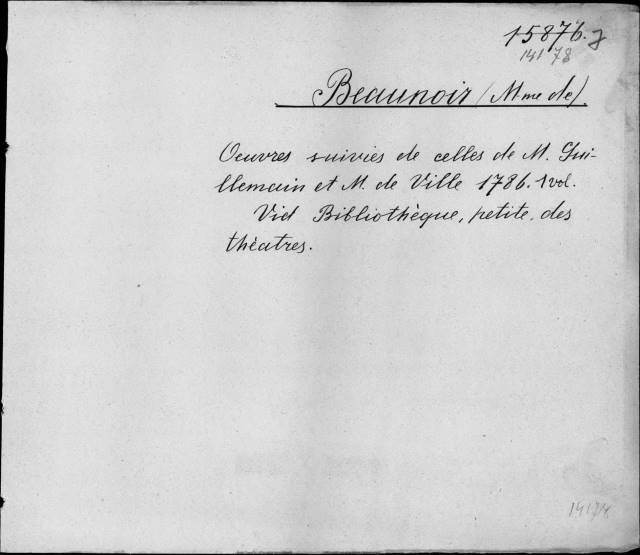 15876.
14178
Beaunoir (Mme de).
Oeuvres suivies de celles de M. Gui-
llemain et M. de Ville 1786. 1 vol.
Vid Bibliothèque, petite, des
théatres.
14178